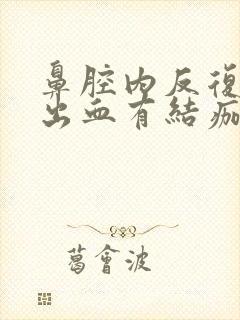 鼻腔内反復
出血有結痂
葛會波